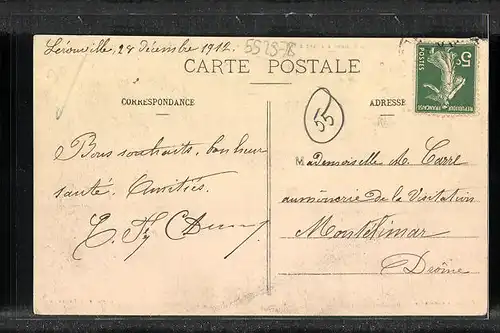 Lérouville, 28 décembre 1912
CARTE POSTALE
CORRESPONDANCE
ADRESSE
55
5c
POSTES
REPUBLIQUE FRANÇAISE
Bons souhaits, bonheur
santé. Amitiés.
Mademoiselle M. Carre
aumônerie de la Visitation
Montélimar
Drôme